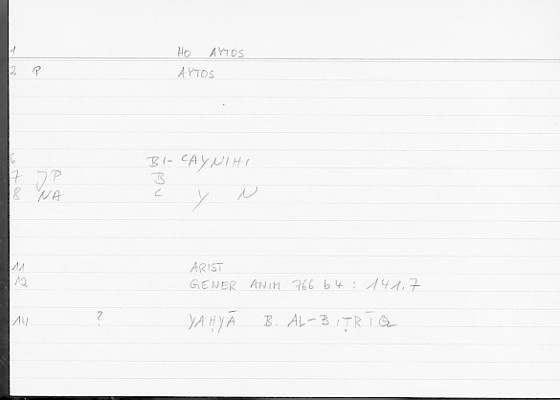 1 HO AYTOS
2 P AYTOS
6 BI-CAYNIHI
7 JP B
8 NA C Y N
11 ARIST
12 GENER ANIM 766 b4 : 141.7
14 ? YAḤYĀ B. AL-BIṬRĪQ